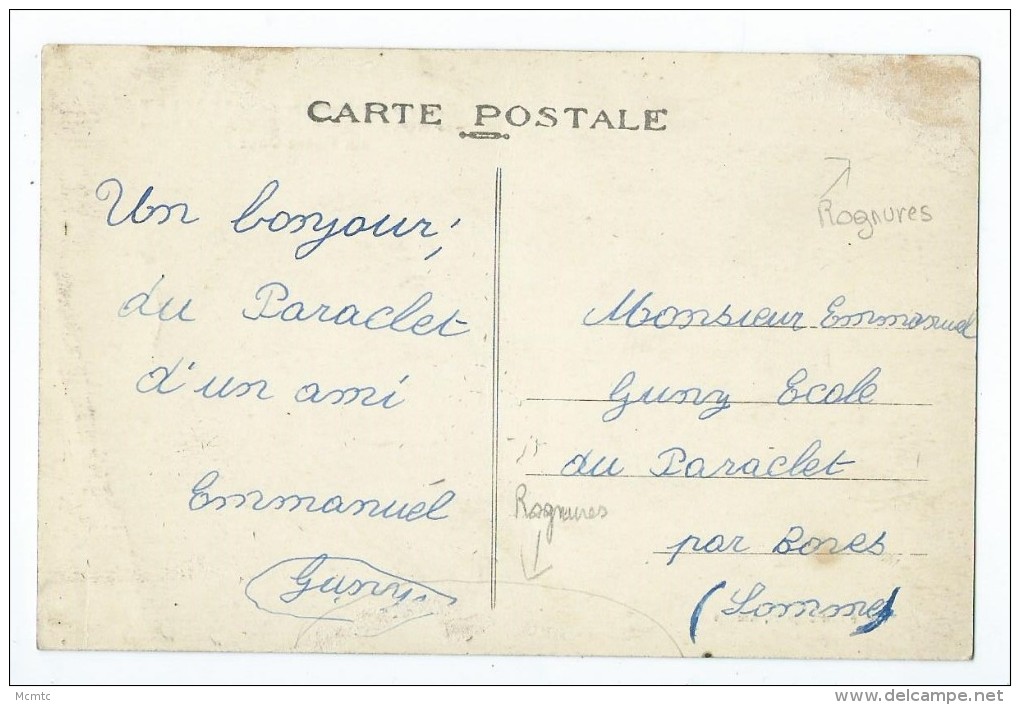 CARTE POSTALE
Un bonjour,
du Paraclet
d'un ami
Emmanuel
Guny
Rognures
Monsieur Emmanuel
Guny Ecole
du Paraclet
par Boves
(Somme)
Rognures
Mcmtc
www.delcampe.net